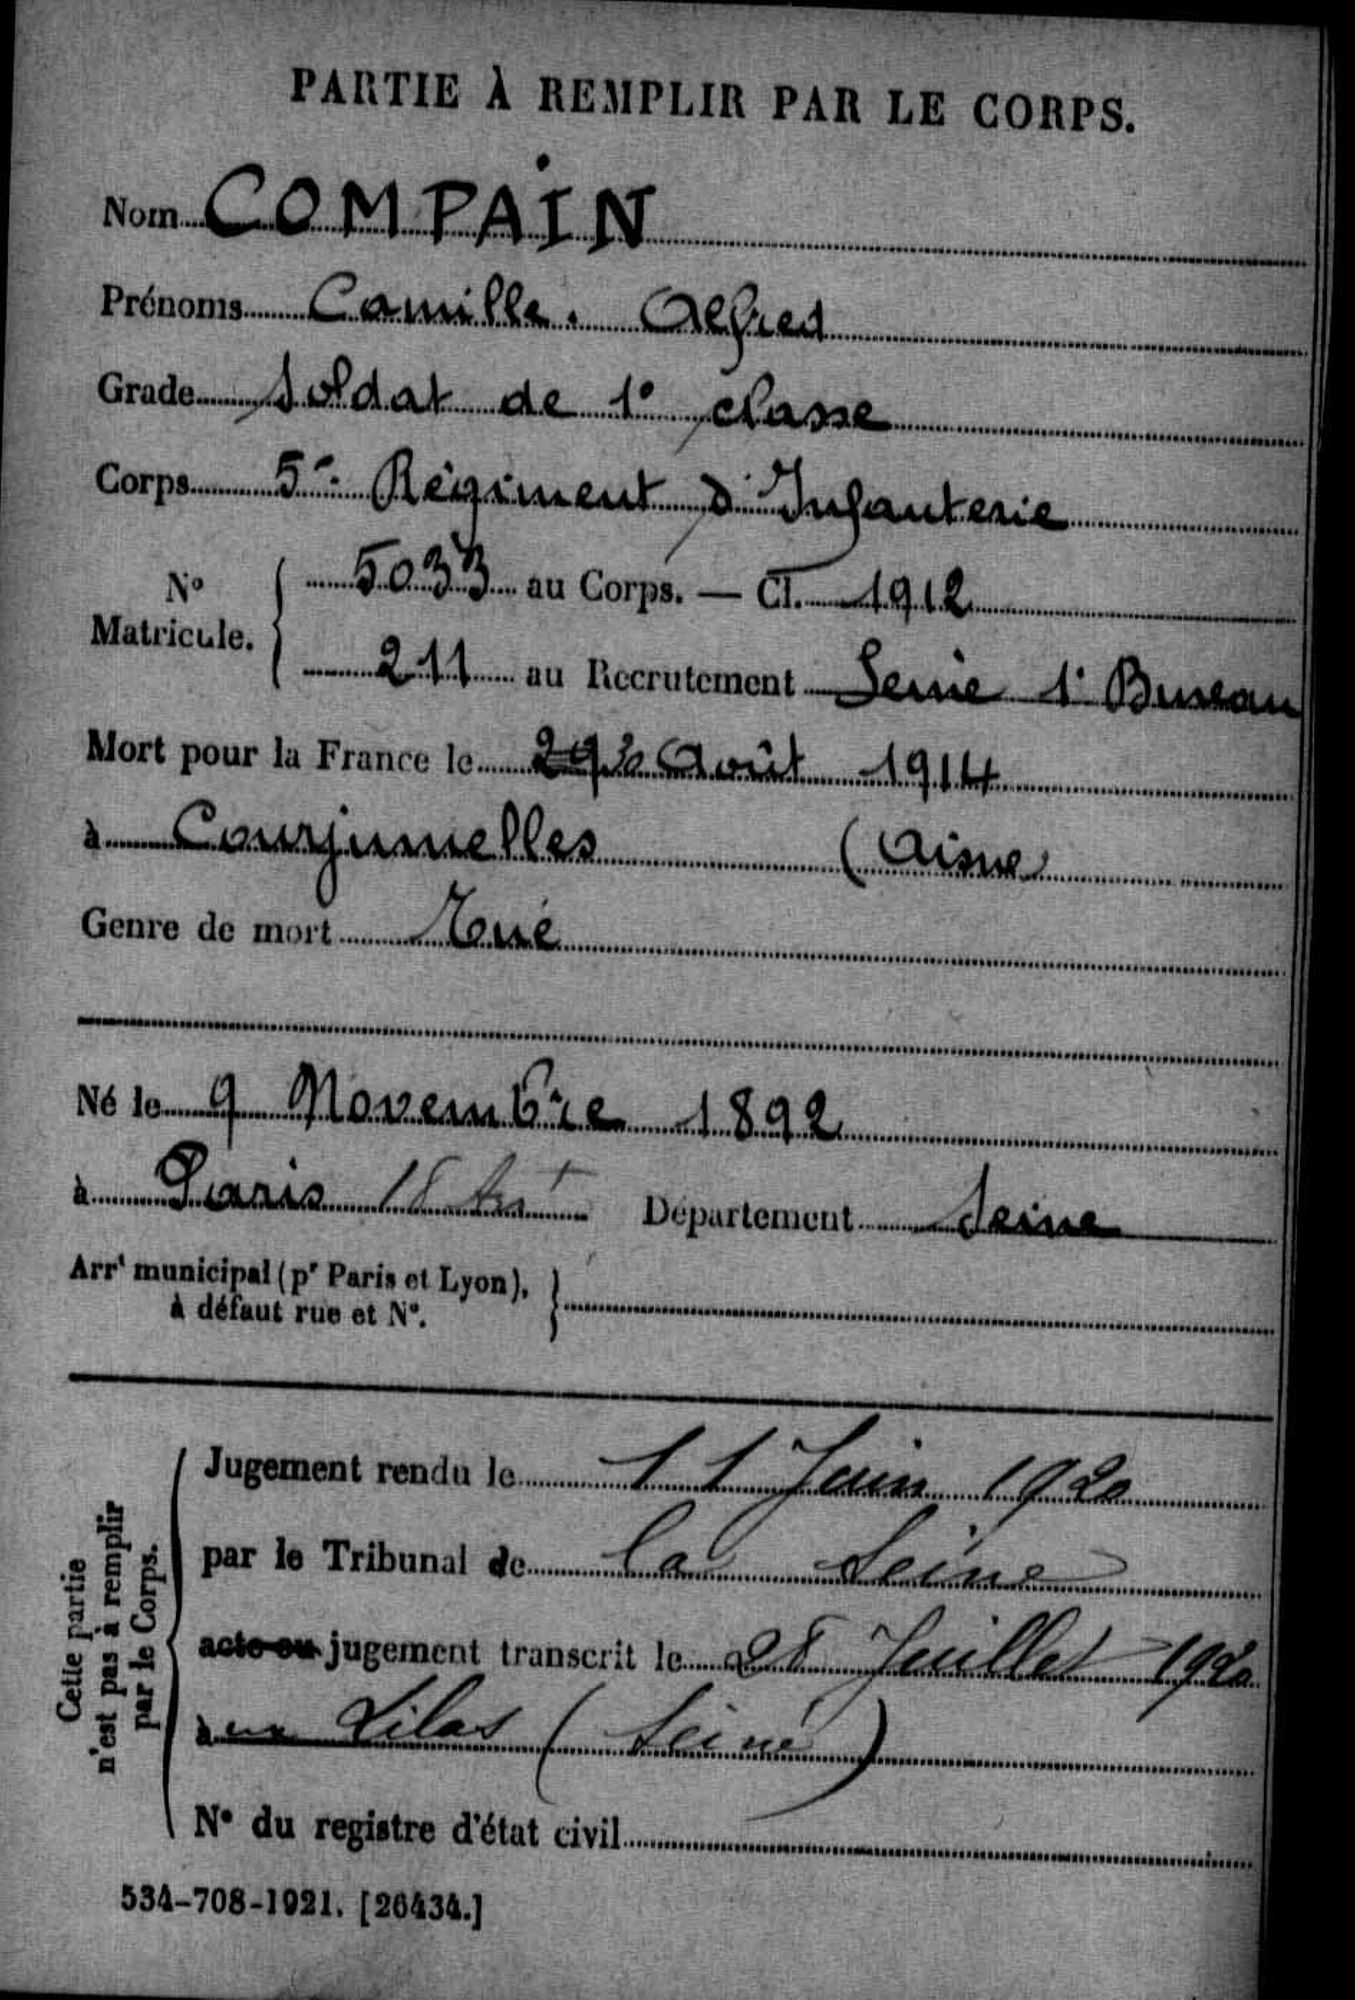 PARTIE À REMPLIR PAR LE CORPS.
Nom COMPAIN
Prénoms Camille. Alfred
Grade Soldat de 1e classe
Corps 5e Régiment d'Infanterie
No Matricule. { 5033 au Corps. — Cl. 1912
211 au Recrutement Seine 1e Bureau
Mort pour la France le Août 1914
à Courjumelles (Aisne
Genre de mort Tué
Né le 9 Novembre 1892
à Paris 18 Art Département Seine
Arrt municipal (pr Paris et Lyon), à défaut rue et No. }
Cette partie n'est pas à remplir par le Corps.
Jugement rendu le 11 Juin 1920
par le Tribunal de la Seine
acte ou jugement transcrit le 28 Juillet 1920
aux Lilas (Seine)
No du registre d'état civil
534-708-1921. [26434.]